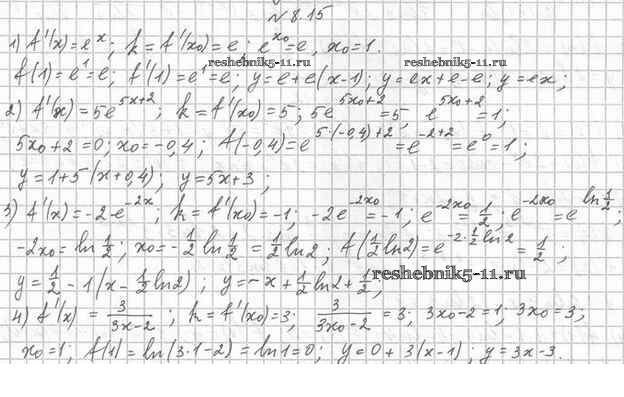 № 8.15
1) f'(x) = e^x; k = f'(x₀) = e; e^{x₀} = e, x₀ = 1.
reshebnik5-11.ru reshebnik5-11.ru
f(1) = e^1 = e; f'(1) = e^1 = e; y = e + e(x-1); y = ex + e - e; y = ex;
2) f'(x) = 5e^{5x+2}; k = f'(x₀) = 5; 5e^{5x₀+2} = 5, e^{5x₀+2} = 1;
5x₀ + 2 = 0; x₀ = -0,4; f(-0,4) = e^{5·(-0,4)+2} = e^{-2+2} = e^0 = 1;
y = 1 + 5(x + 0,4); y = 5x + 3;
3) f'(x) = -2·e^{-2x}; k = f'(x₀) = -1; -2e^{-2x₀} = -1; e^{-2x₀} = 1/2; e^{-2x₀} = e^{ln 1/2};
-2x₀ = ln 1/2; x₀ = -1/2 ln 1/2 = 1/2 ln 2; f(1/2 ln 2) = e^{-2·1/2 ln 2} = 1/2;
reshebnik5-11.ru
y = 1/2 - 1(x - 1/2 ln 2); y = -x + 1/2 ln 2 + 1/2;
4) f'(x) = 3/(3x-2); k = f'(x₀) = 3; 3/(3x₀-2) = 3; 3x₀-2 = 1; 3x₀ = 3;
x₀ = 1; f(1) = ln(3·1-2) = ln 1 = 0; y = 0 + 3(x-1); y = 3x-3.